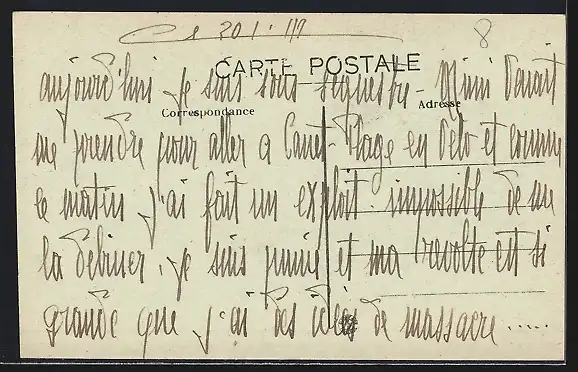 Ce 20 1.
8
CARTE POSTALE
Correspondance
Adresse
aujourd'hui je suis sous sequestre - Mimi venait
me prendre pour aller a Canet-Plage en velo et comme
le matin j'ai fait un exploit. impossible de me
la debiner. je suis punie et ma revolte est si
grande que j'ai des idées de massacre .....